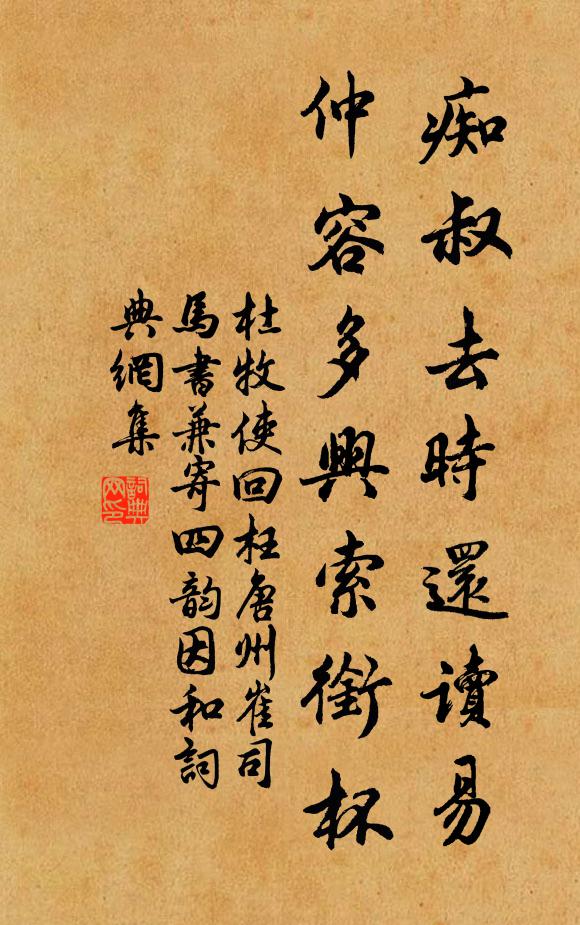 痴叔去時還讀易
仲容多興索銜杯
杜牧使回枉唐州崔司
馬書兼寄四韵因和詞
典網集
詞典网印